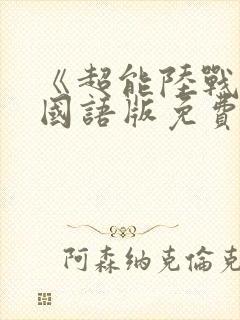 《超能陸戰
國語版免費
阿森纳克倫克